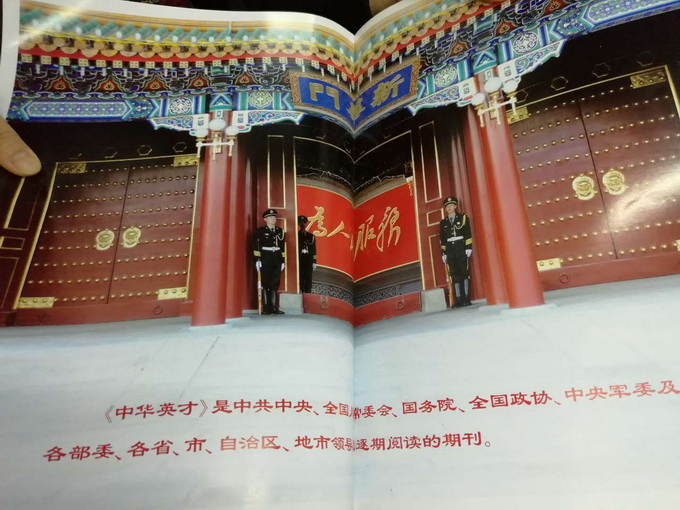 新華門
为人服务
《中华英才》是中共中央、全国人常委会、国务院、全国政协、中央军委及
各部委、各省、市、自治区、地市领导逐期阅读的期刊。